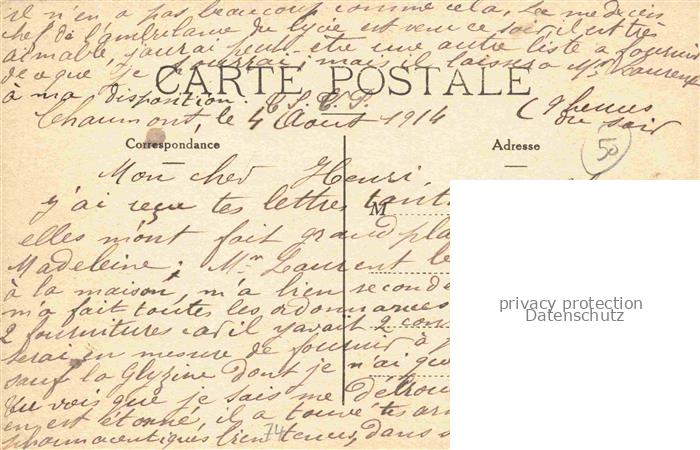 il n'en a pas beaucoup comme cela. Le médecin
chef de l'ambulance du lycée est venu ce soir, il est très
aimable, j'aurai peut-être une autre liste à fournir
de ce que je pourrai; mais il laisse Mr Laurent
à ma disposition.
CARTE POSTALE
Chaumont, le 4 Août 1914 (9 heures
du soir
Correspondance
Adresse
50
Mon cher Henri,
j'ai reçu tes lettres tant
M
elles m'ont fait grand pla
Madeleine; Mr Laurent le
à la maison, m'a bien secondé
m'a fait toutes les ordonnances
2 fournitures car il y avait 2 con
serai en mesure de fournir à
sauf la Glyzine dont je n'ai qu
tu vois que je sais me débrou
en est étonné, il a trouvé tes arm
pharmaceutiques bien tenues, dans s
74
privacy protection
Datenschutz